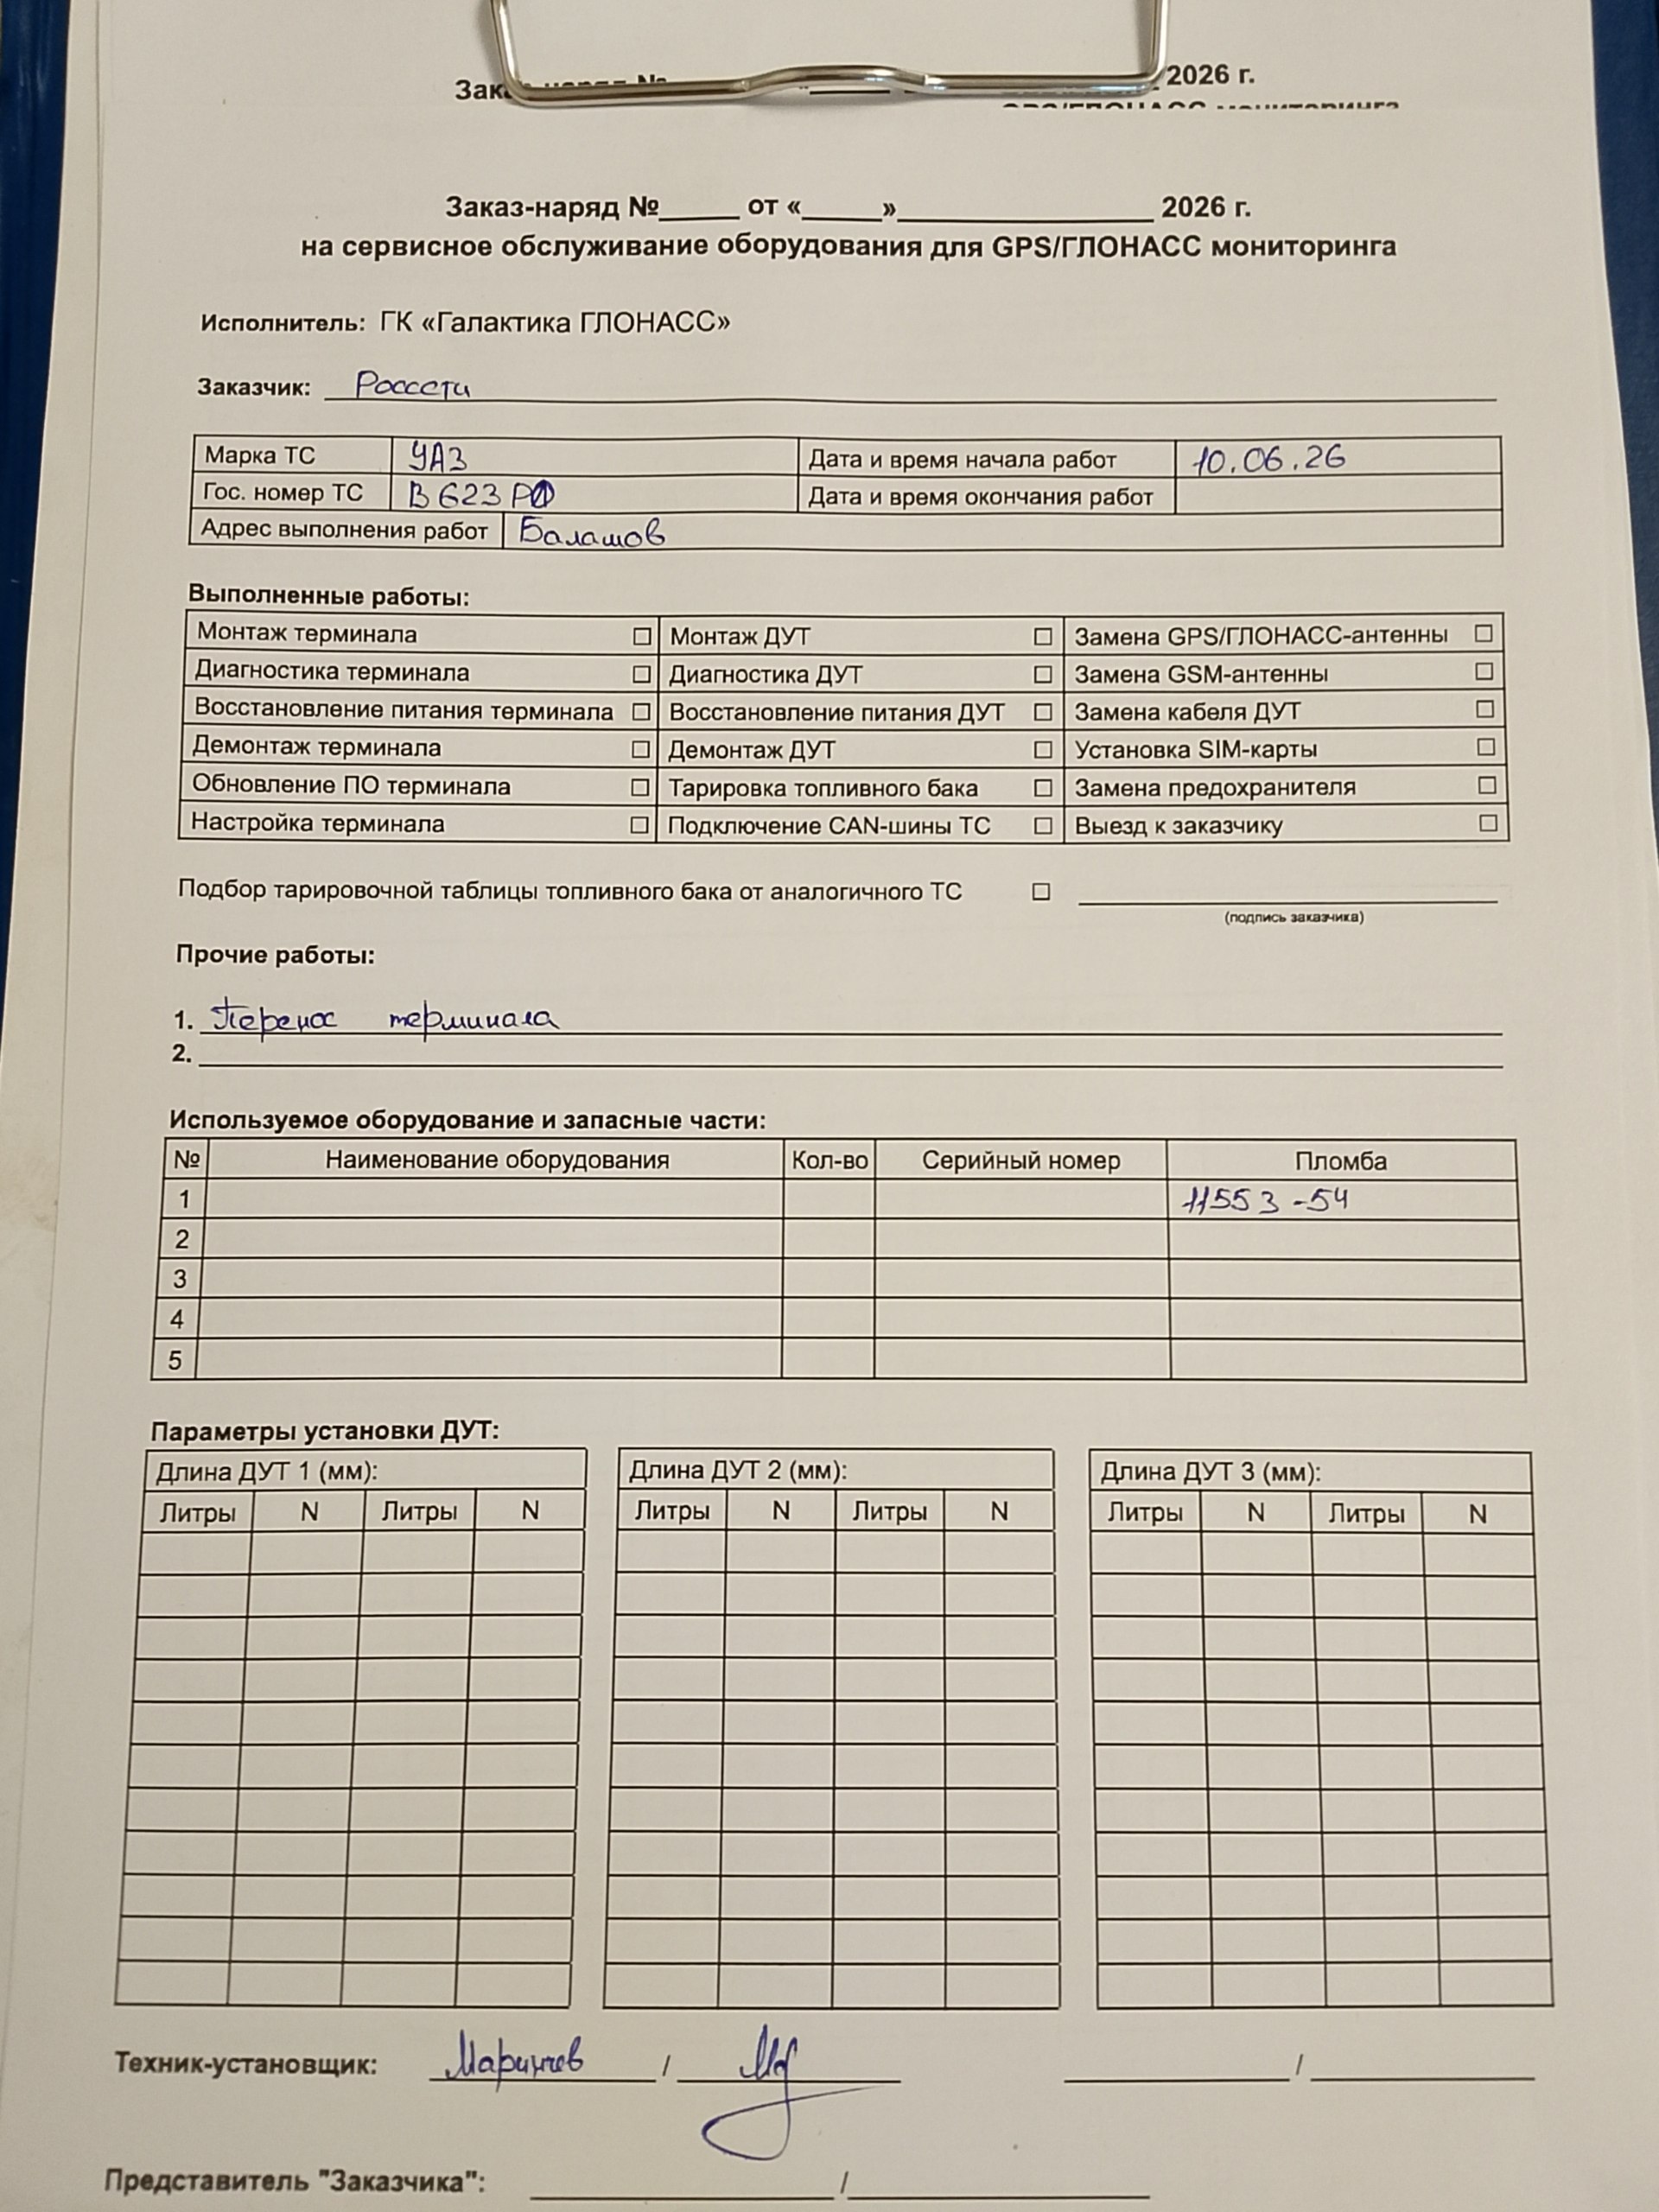 2026 г.
Заказ-наряд №_____ от «_____»________________ 2026 г.
на сервисное обслуживание оборудования для GPS/ГЛОНАСС мониторинга
Исполнитель: ГК «Галактика ГЛОНАСС»
Заказчик: Россети
Марка ТС УАЗ Дата и время начала работ 10.06.26
Гос. номер ТС В 623 РО Дата и время окончания работ
Адрес выполнения работ Балашов
Выполненные работы:
Монтаж терминала ☐ Монтаж ДУТ ☐ Замена GPS/ГЛОНАСС-антенны ☐
Диагностика терминала ☐ Диагностика ДУТ ☐ Замена GSM-антенны ☐
Восстановление питания терминала ☐ Восстановление питания ДУТ ☐ Замена кабеля ДУТ ☐
Демонтаж терминала ☐ Демонтаж ДУТ ☐ Установка SIM-карты ☐
Обновление ПО терминала ☐ Тарировка топливного бака ☐ Замена предохранителя ☐
Настройка терминала ☐ Подключение CAN-шины ТС ☐ Выезд к заказчику ☐
Подбор тарировочной таблицы топливного бака от аналогичного ТС ☐
(подпись заказчика)
Прочие работы:
1. Перенос терминала
2.
Используемое оборудование и запасные части:
№ Наименование оборудования Кол-во Серийный номер Пломба
1 11553-54
2
3
4
5
Параметры установки ДУТ:
Длина ДУТ 1 (мм): Длина ДУТ 2 (мм): Длина ДУТ 3 (мм):
Литры N Литры N Литры N Литры N Литры N Литры N
Техник-установщик: / /
Представитель "Заказчика": /